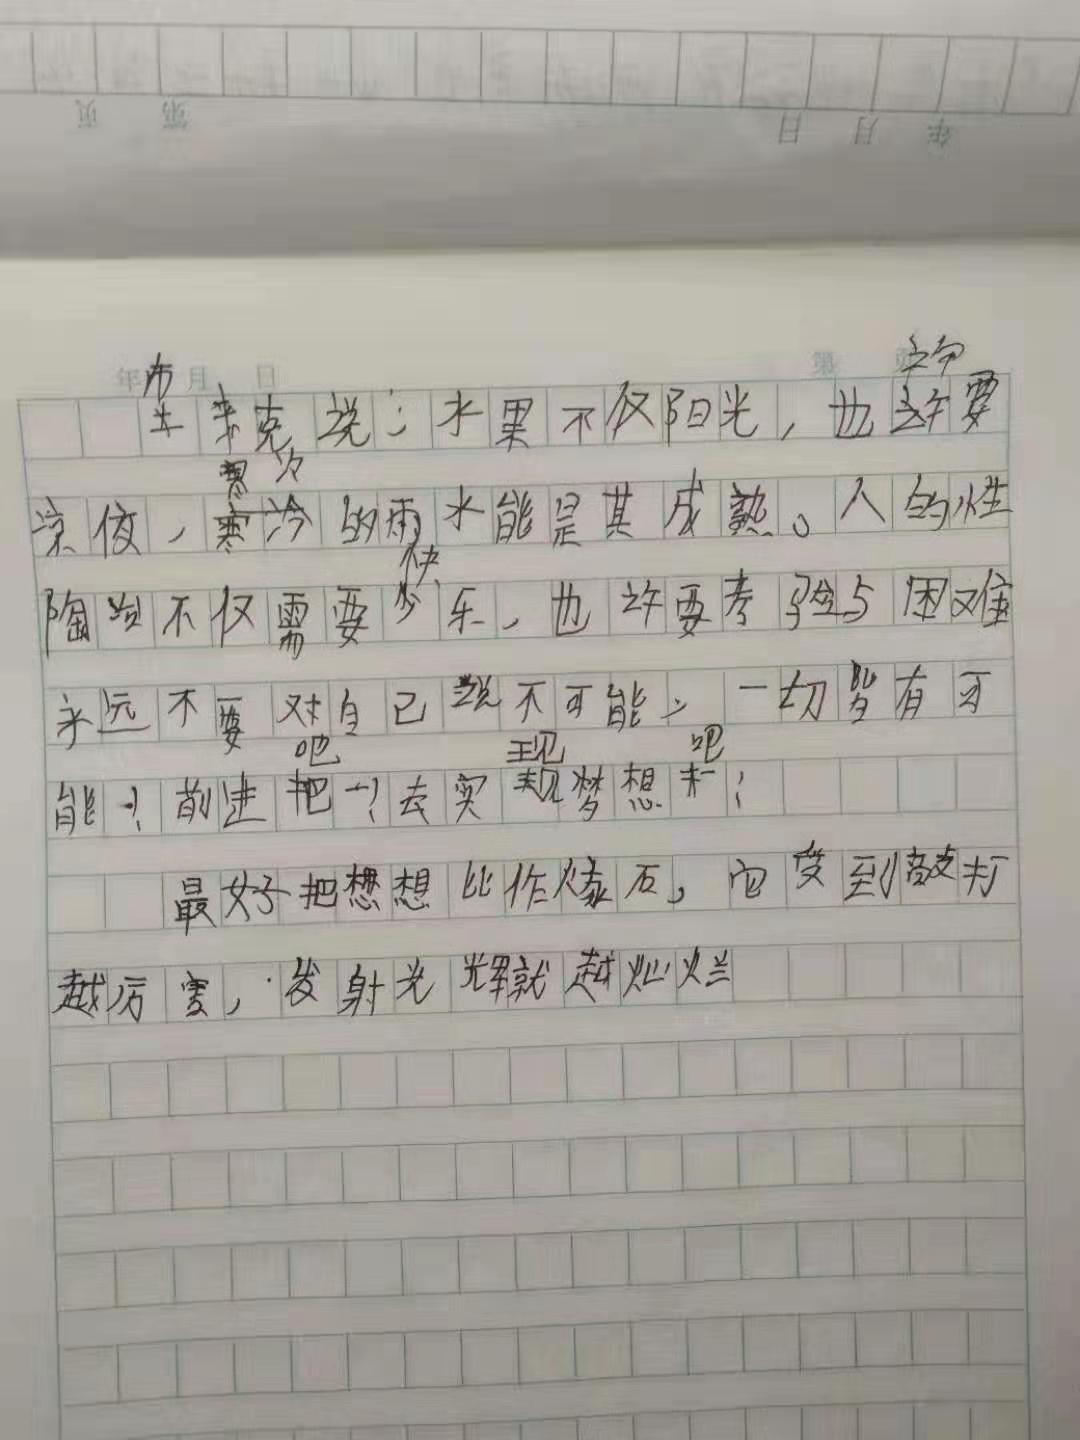 页 第 日 月 年
年 月 日 第 页
布
克说：水果不仅阳光，也许要
凉夜，寒冷的雨水能是其成熟。人的性
快
陶不仅需要乐，也许要考验与困难
永远不要对自己说不可能，一切皆有可
吧 现 吧
能！前进把！去实现梦想！
最好把想比作石，它受到敲打
越厉害，发射光辉就越灿烂